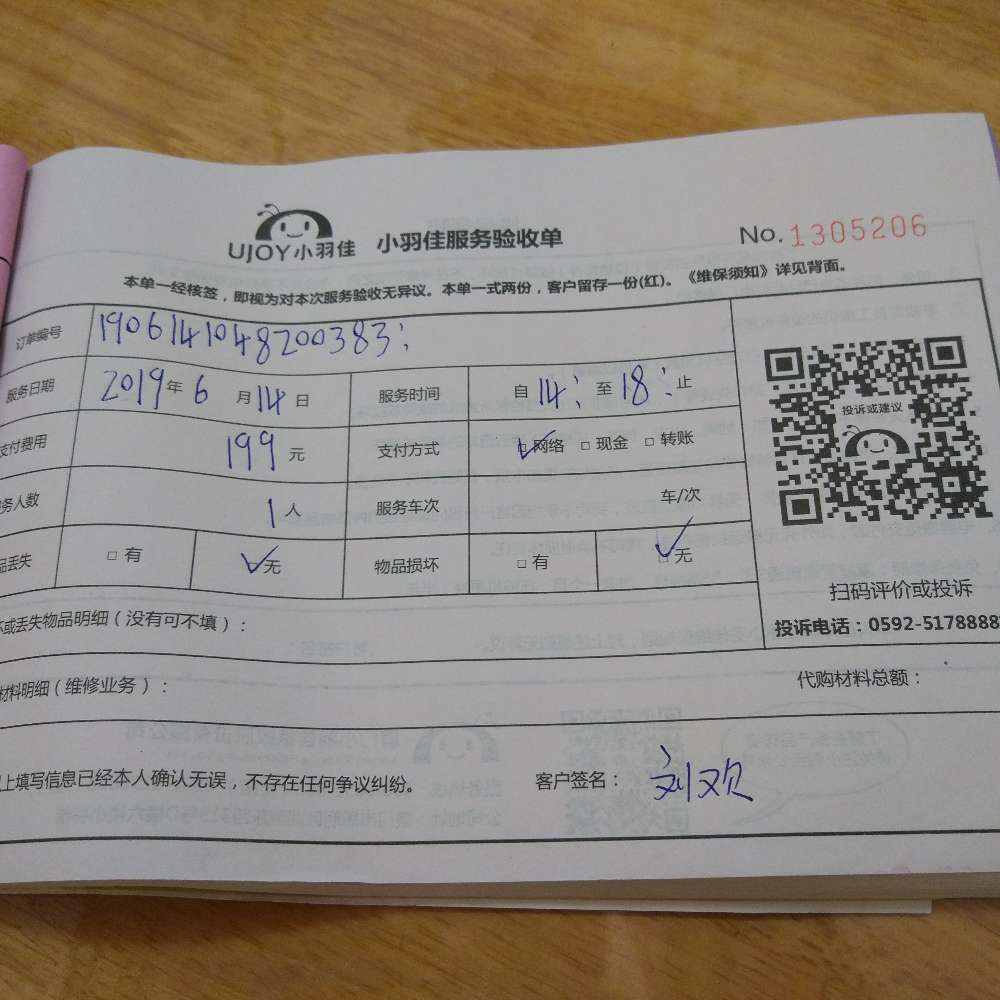 UJOY小羽佳 小羽佳服务验收单 No.1305206
本单一经核签，即视为对本次服务验收无异议。本单一式两份，客户留存一份(红)。《维保须知》详见背面。
订单编号 190614104820038３；
服务日期 2019年6月14日 服务时间 自14：至18：止
支付费用 199元 支付方式 ☑网络 □现金 □转账
务人数 1人 服务车次 车/次
品丢失 □有 ☑无 物品损坏 □有 ☑无
投诉或建议
扫码评价或投诉
投诉电话：0592-5178888
坏或丢失物品明细（没有可不填）：
材料明细（维修业务）： 代购材料总额：
上填写信息已经本人确认无误，不存在任何争议纠纷。 客户签名：刘欢